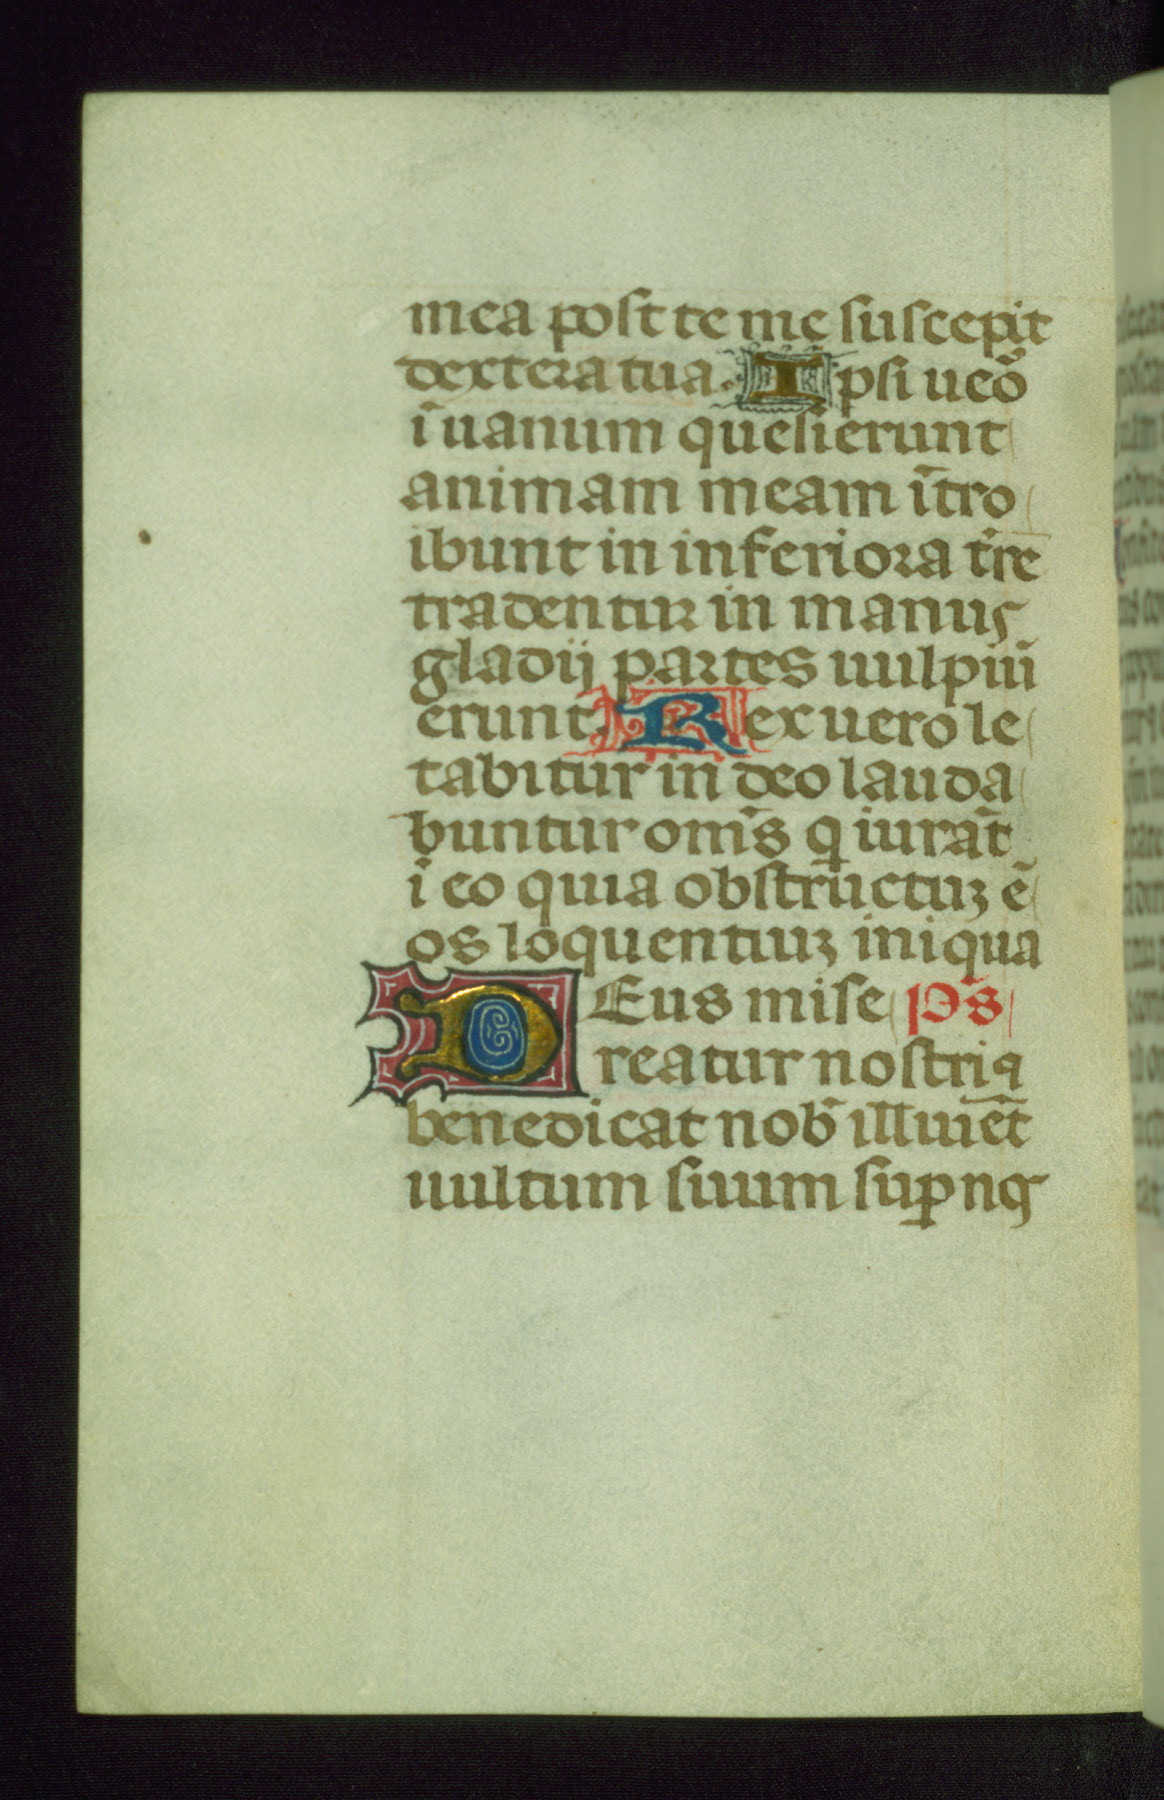 mea post te me suscepit
dextera tua. Ipsi ueõ
ī uanum quesierunt
animam meam ītro
ibunt in inferiora t̄re
tradentur in manus
gladij partes uulpiū
erunt. Rex uero le
tabitur in deo lauda
buntur om̄s q iurāt
ī eo quia obstructuʒ ē
os loquentiuʒ iniqua
DEus mise p̄s
reatur nostri ⁊
benedicat nob̄ illuiēt
uultum suum suꝑ nos